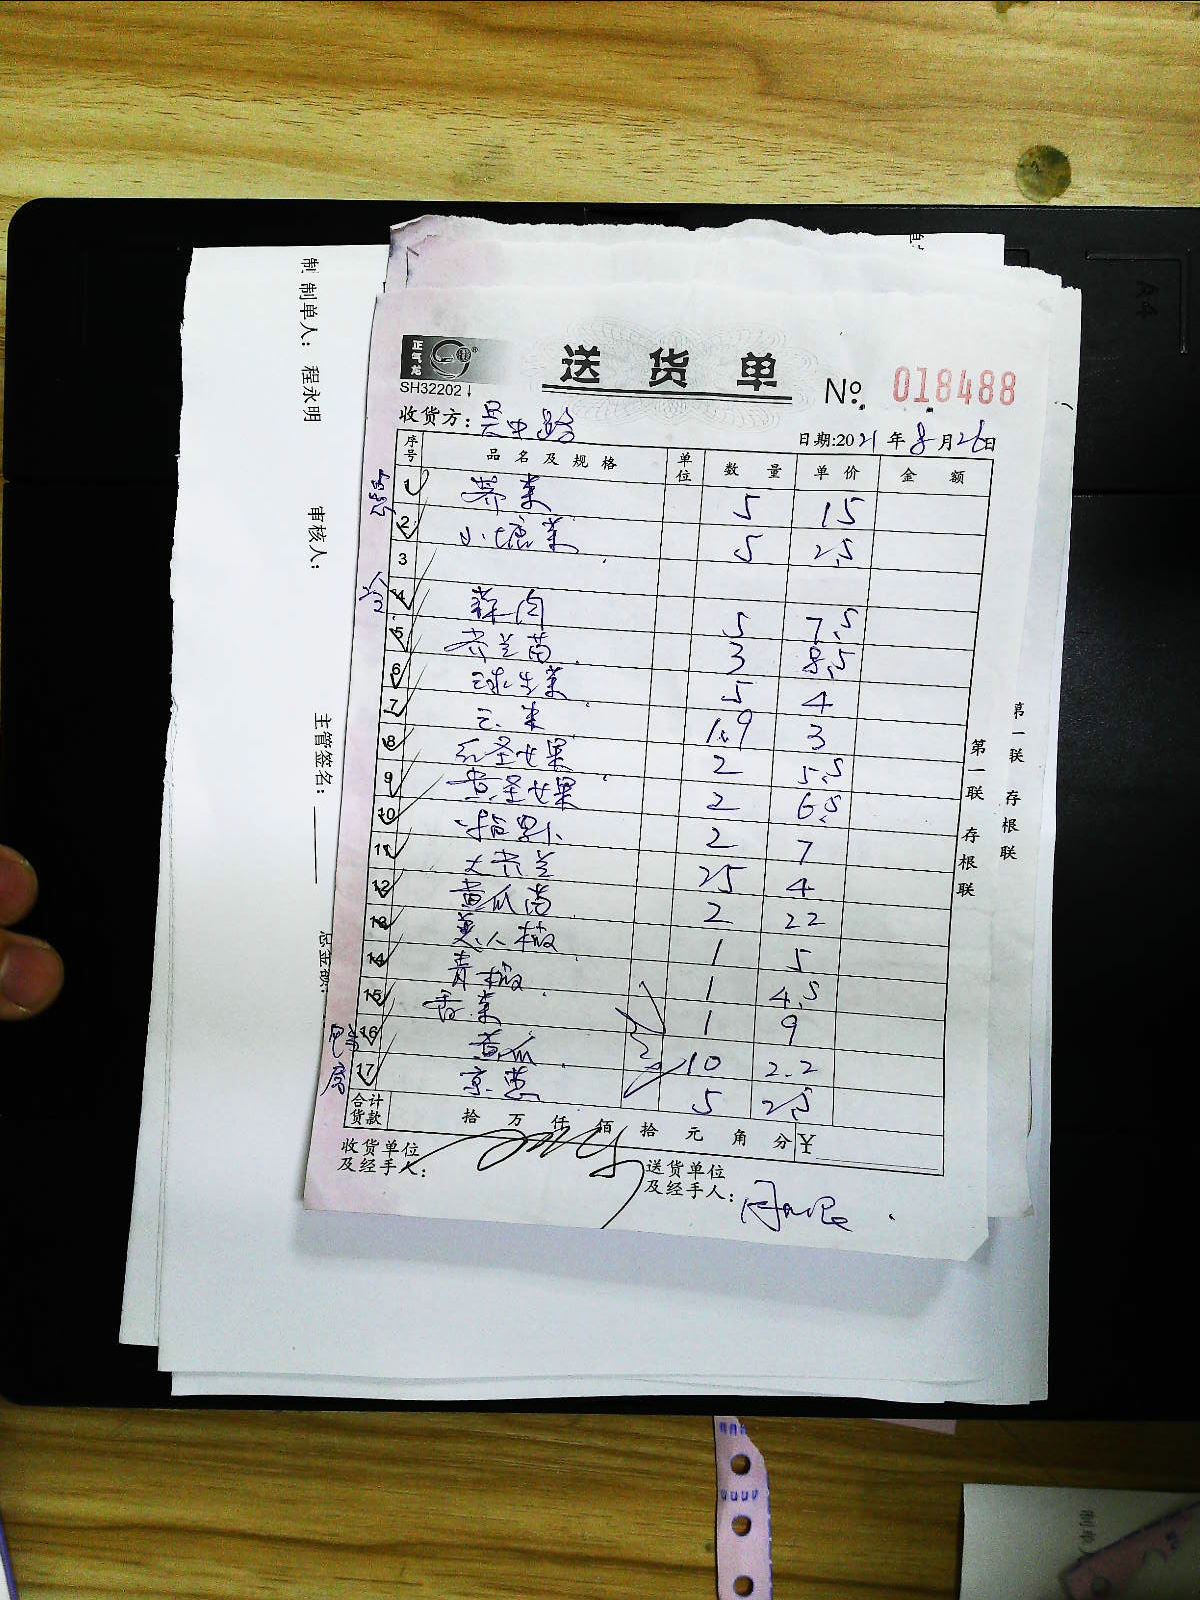 正气龙
SH32202
送货单
No. 018488
收货方: 吴中路
日期:2021年8月26日
序号 品名及规格 单位 数量 单价 金额
1 荠菜 5 15
2 小塘菜 5 2.5
3
4 蒜肉 5 7.5
5 芥兰苗 3 8.5
6 球生菜 5 4
7 3
8 红圣女果 2 5.5
9 黄圣女果 2 6.5
10 2 7
11 大芥兰 25 4
12 黄瓜苗 2 22
13 美人椒 1 5
14 青椒 1 4.5
15 香菜 1 9
16 黄瓜 10 2.2
17 京葱 5 2.5
合计货款 拾 万 仟 佰 拾 元 角 分 ¥
收货单位及经手人:
送货单位及经手人:
第一联 存根联
第一联 存根联
制单人: 程永明
审核人:
主管签名:
总金额:
A4